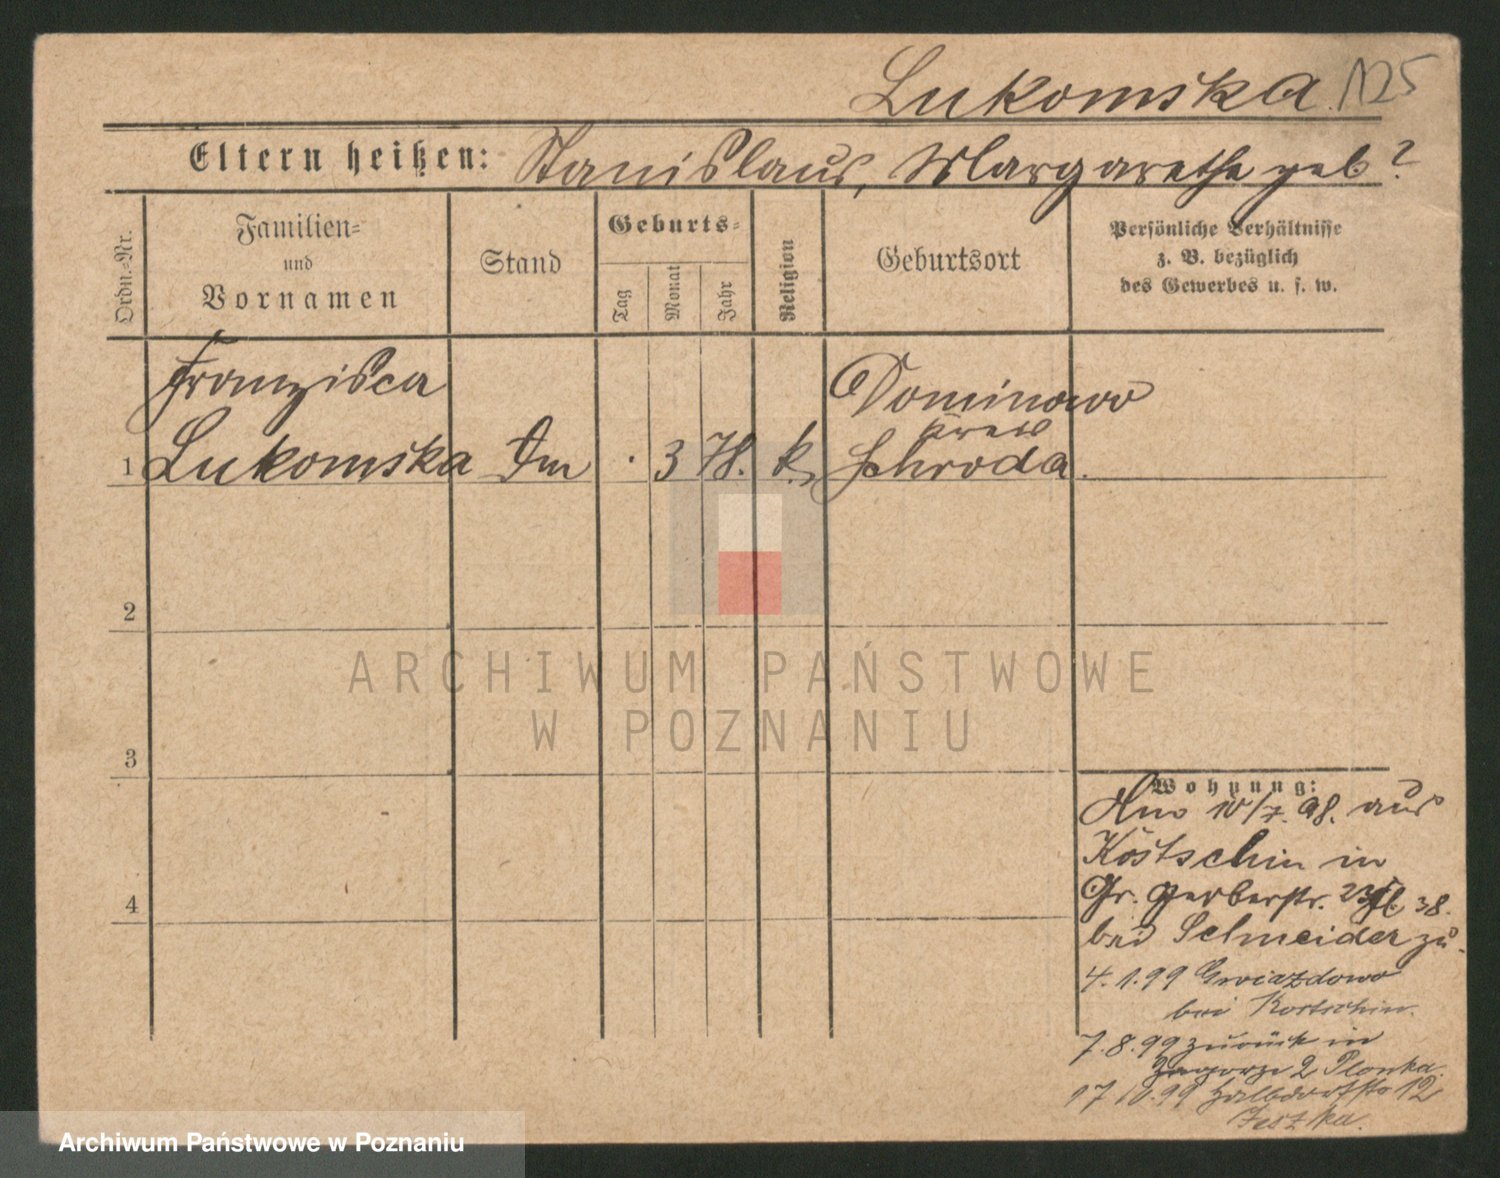 Lukomska. 1125
Eltern heißen: Stanislaus, Margarethe geb?
Ordn.-Nr.
Familien-
und
Vornamen
Stand
Geburts-
Tag
Monat
Jahr
Religion
Geburtsort
Persönliche Verhältnisse
z. B. bezüglich
des Gewerbes u. s. w.
Franziska
1 Lukomska Dm . 3 78. k.
Dominowo
Kreis
Schroda.
2
3
4
ARCHIWUM PAŃSTWOWE
W POZNANIU
Wohnung:
10/7. 98. aus
Kostschin in
Gr. Gerberstr. 38.
bei Schneider zu.
4.1.99 Gwiazdowo
bei Kostschin.
7.8.99 zurück in
Zagorze 2 Plonka.
17 10.99 Halbdorfstr 12
Jeszka.
Archiwum Państwowe w Poznaniu